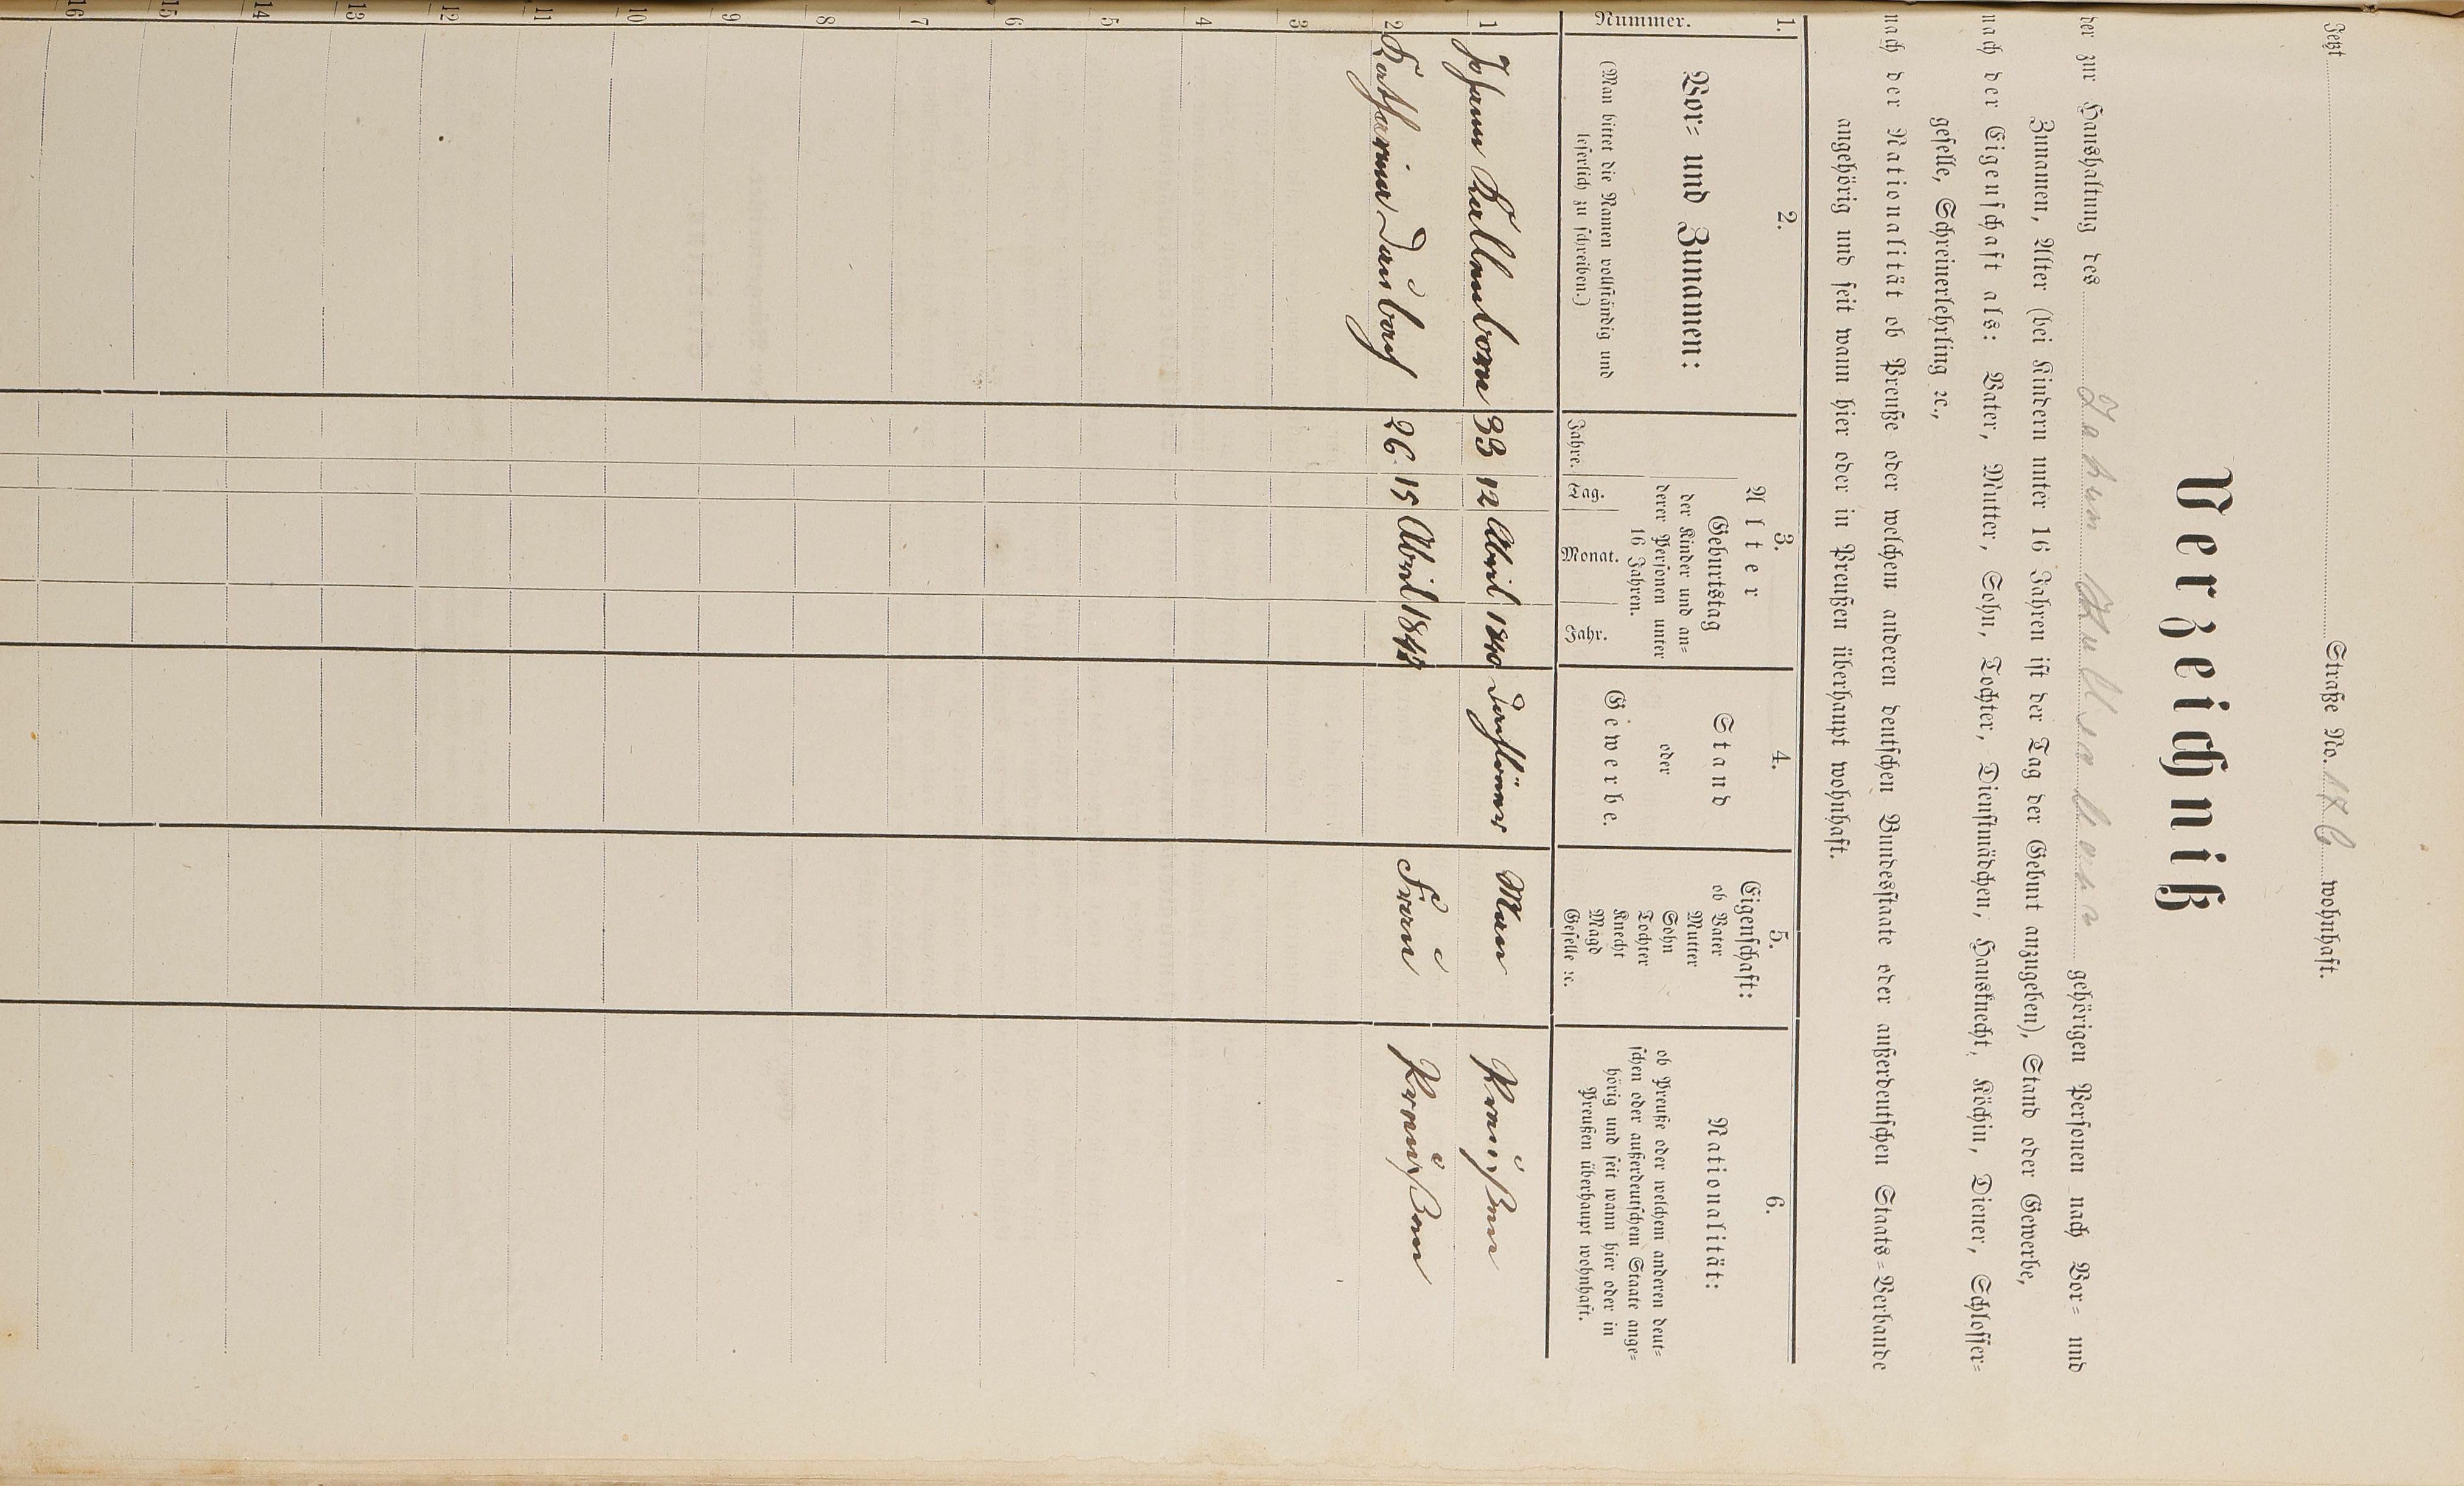 Jetzt Straße No. 176 wohnhaft.
Verzeichniß
der zur Haushaltung des Johan Kallenborn gehörigen Personen nach Vor= und
Zunamen, Alter (bei Kindern unter 16 Jahren ist der Tag der Geburt anzugeben), Stand oder Gewerbe,
nach der Eigenschaft als: Vater, Mutter, Sohn, Tochter, Dienstmädchen, Hausknecht, Köchin, Diener, Schlosser=
geselle, Schreinerlehrling ꝛc.,
nach der Nationalität ob Preuße oder welchem anderen deutschen Bundesstaate oder außerdeutschen Staats=Verbande
angehörig und seit wann hier oder in Preußen überhaupt wohnhaft.
1. 2. 3. 4. 5. 6.
Nummer.
Vor= und Zunamen:
(Man bittet die Namen vollständig und
leserlich zu schreiben.)
Alter
Geburtstag
der Kinder und an=
derer Personen unter
16 Jahren.
Jahre. Tag. Monat. Jahr.
Stand
oder
Gewerbe.
Eigenschaft:
ob Vater
Mutter
Sohn
Tochter
Knecht
Magd
Geselle ꝛc.
Nationalität:
ob Preuße oder welchem anderen deut=
schen oder außerdeutschem Staate ange=
hörig und seit wann hier oder in
Preußen überhaupt wohnhaft.
1 Johann Kallenborn 33 12 Abril 1840 Man
2 Katharina 26 15 Abril Frau
3
4
5
6
7
8
9
10
11
12
13
14
15
16